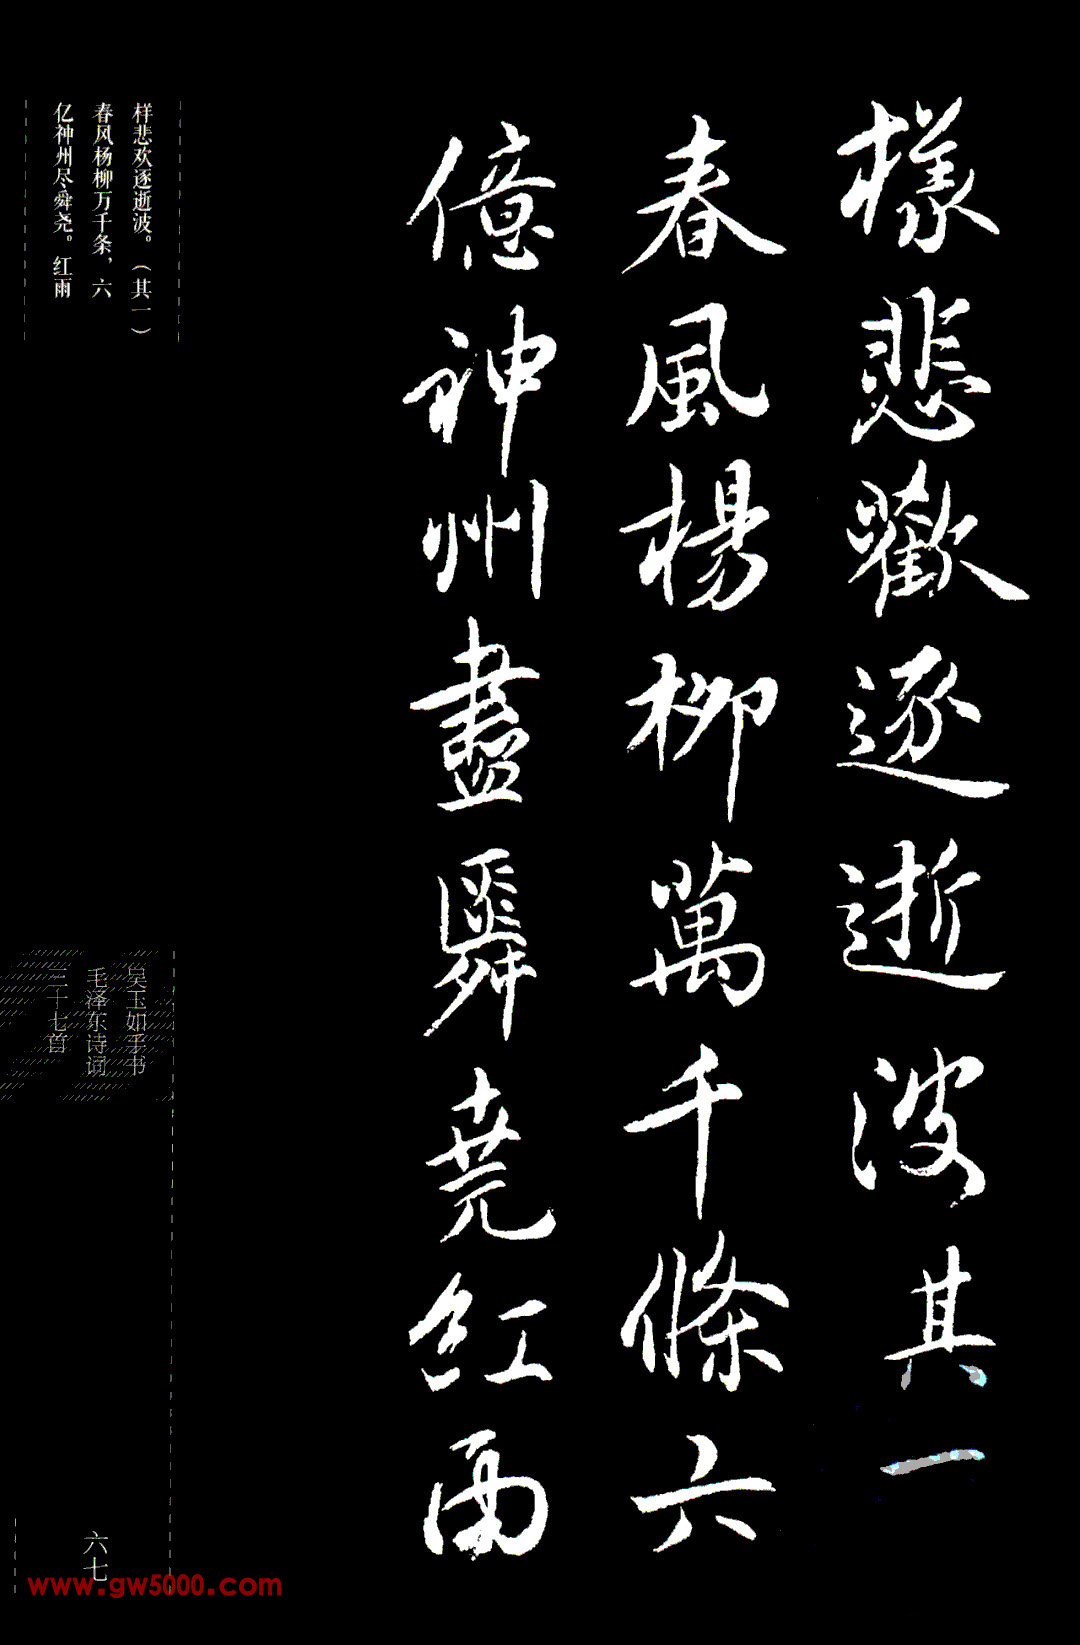 樣悲歡逐逝波其一
春風楊柳萬千條六
億神州盡舜堯紅雨
样悲欢逐逝波。（其一）
春风杨柳万千条，六
亿神州尽舜尧。红雨
吴玉如手书
毛泽东诗词
三十七首
六七
www.gw5000.com